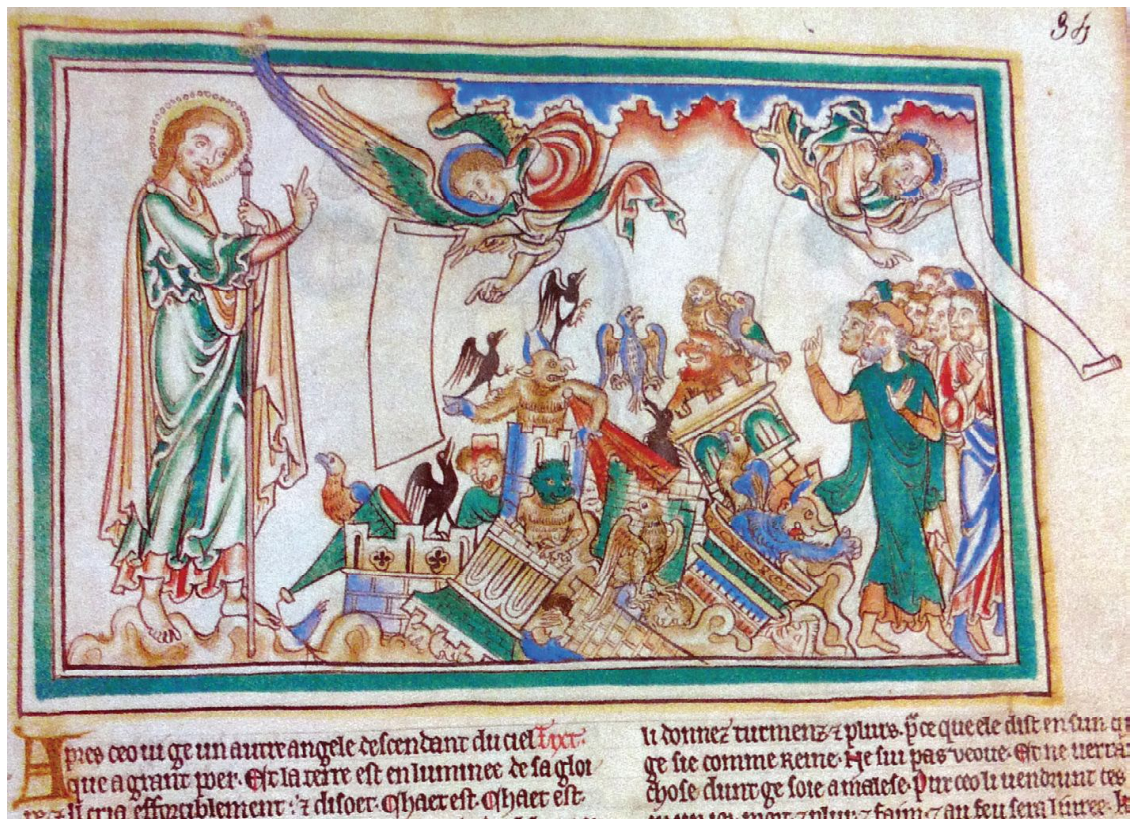 34
Apres ceo vi ge un autre angele descendant du ciel Text:
que a grant poer. Et la terre est enluminee de sa gloi
re. ⁊ il cria efforciblement: ⁊ disoet. Chaet est. Chaet est.
li donnez turmenz ⁊ plurs. ꝑ ce que ele dist en sun
ge sie comme Reine. Ne sui pas veove. Et ne verrai
chose dunt ge soie a malese. Pur ceo li vendrunt ces
mort. ⁊ plur ⁊ faim. ⁊ au feu sera livree.